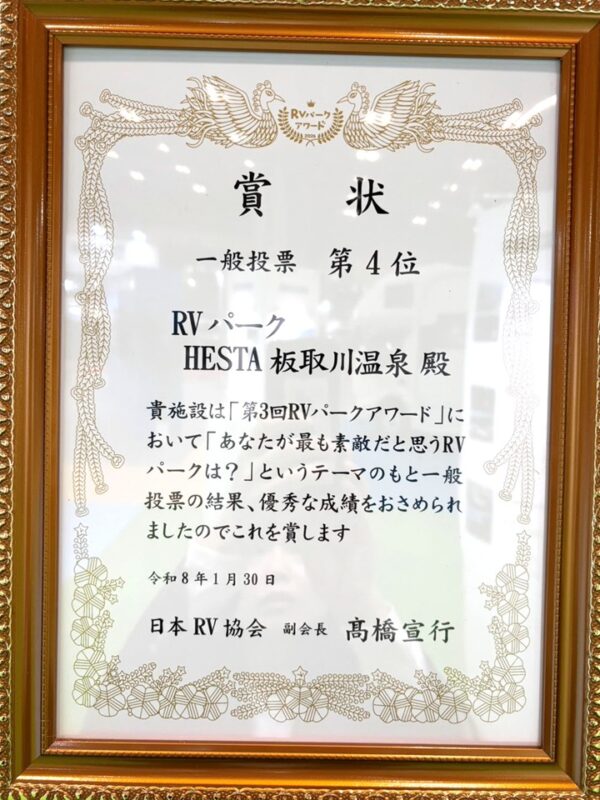 RVパーク
アワード
賞状
一般投票 第4位
RVパーク
HESTA 板取川温泉 殿
貴施設は「第3回RVパークアワード」に
おいて「あなたが最も素敵だと思うRV
パークは?」というテーマのもと一般
投票の結果、優秀な成績をおさめられ
ましたのでこれを賞します
令和8年1月30日
日本RV協会 副会長 髙橋宣行